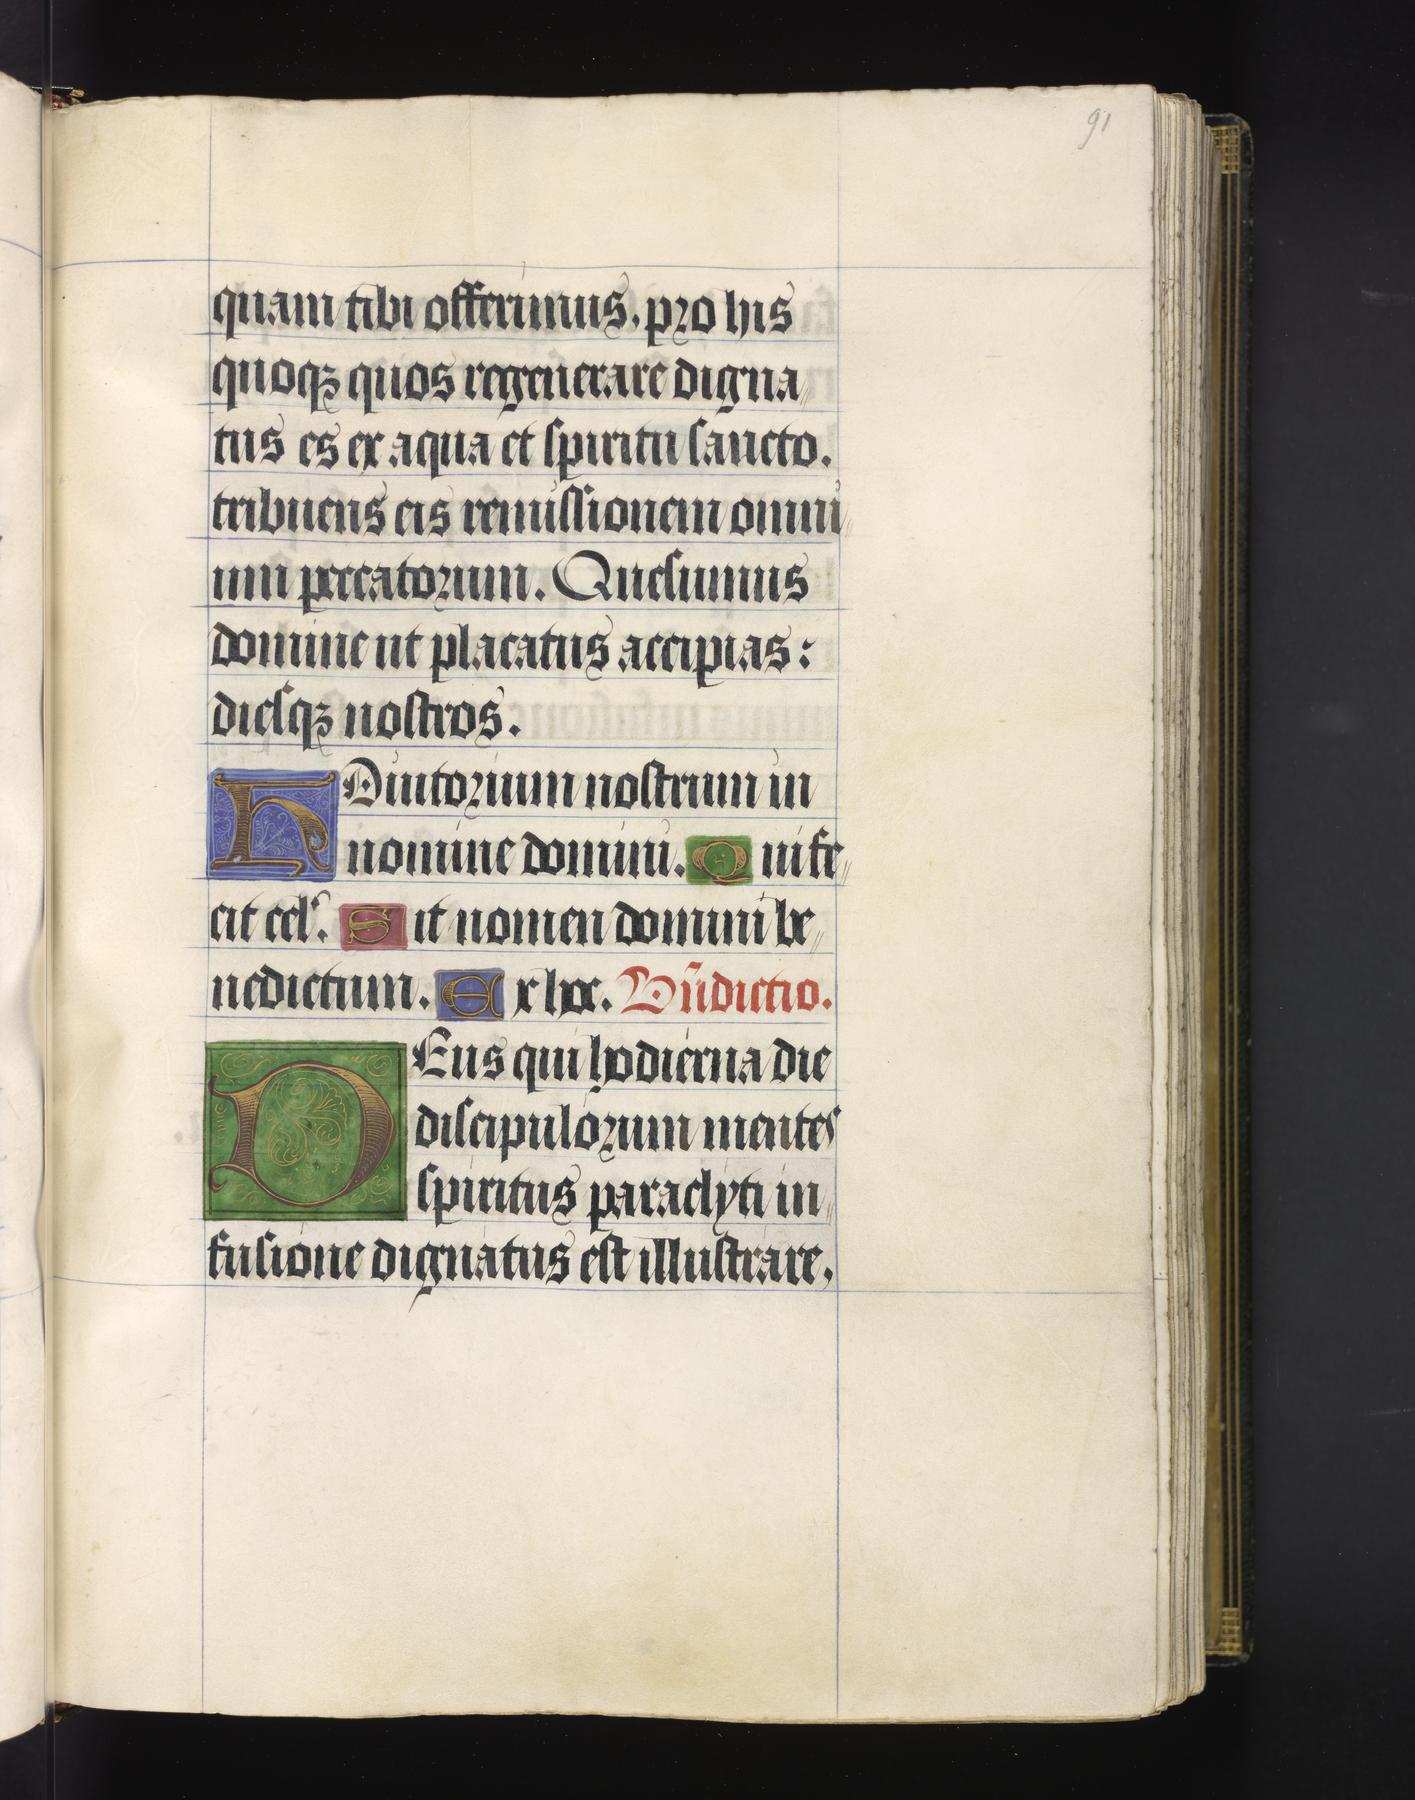 91
quam tibi offerimus. pro his
quoqꝫ quos regenerare digna//
tus es ex aqua et spiritu sancto.
tribuens eis remissionem omni//
um peccatorum. Quesumus
domine ut placatus accipias:
diesqꝫ nostros.
ADiutorium nostrum in
nomine domini. Qui fe//
cit cel'. Sit nomen domini be//
nedictum. Ex hoc. Bn̄dictio.
DEus qui hodierna die
discipulorum mentes
spiritus paraclyti in//
fusione dignatus est illustrare,